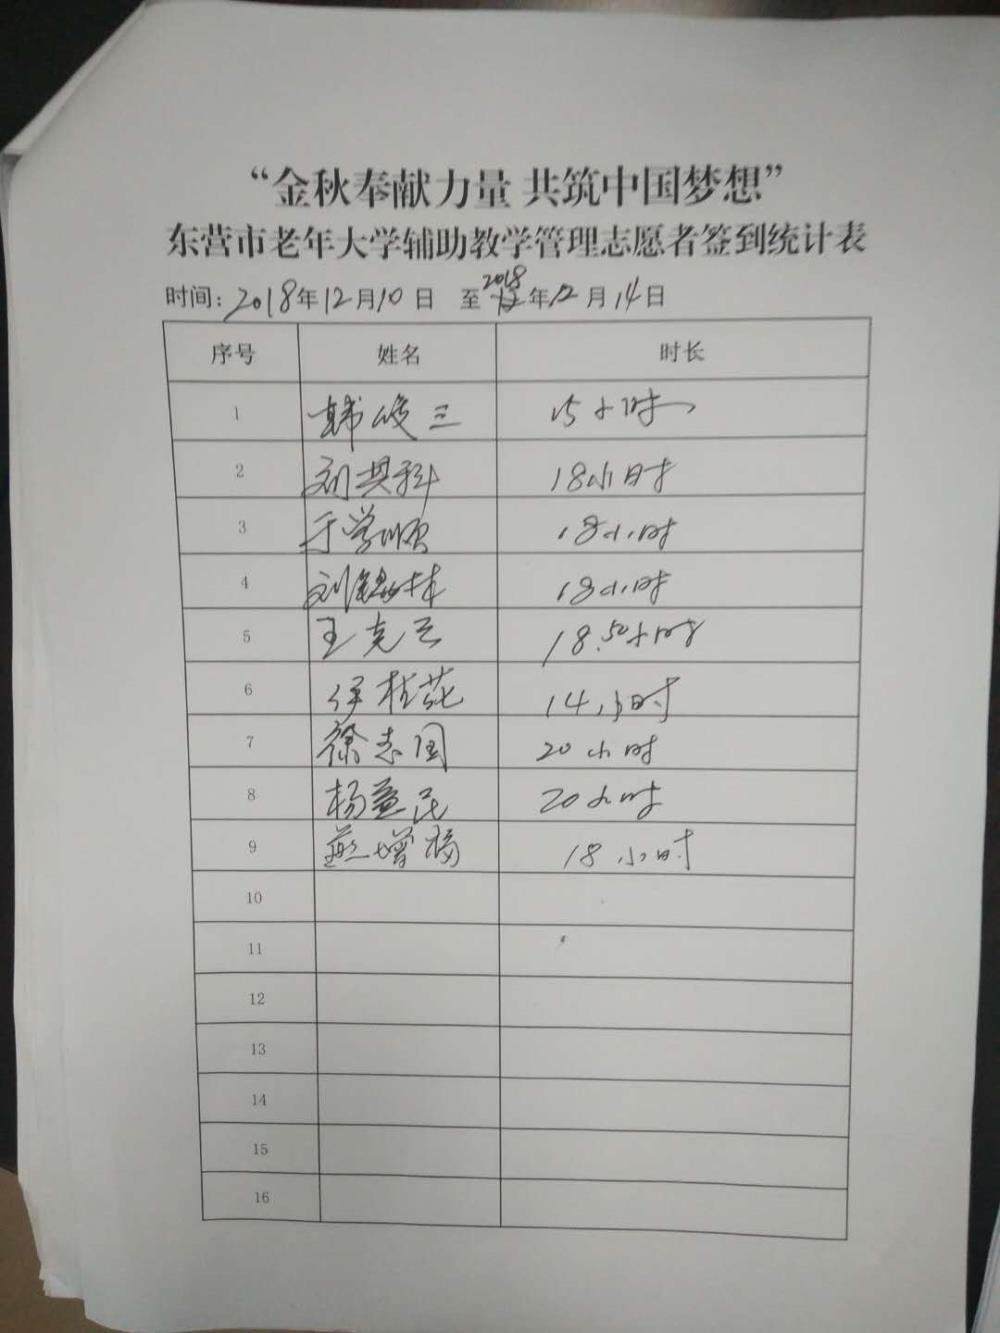 “金秋奉献力量 共筑中国梦想”
东营市老年大学辅助教学管理志愿者签到统计表
时间：2018年12月10日 至2018年12月14日
序号 姓名 时长
1 韩俊三 15小时
2 刘共科 18小时
3 于学顺 18小时
4 刘林 18小时
5 王克云 18.50小时
6 伊桂花 14小时
7 徐志国 20小时
8 杨益民 20小时
9 燕增福 18小时
10
11
12
13
14
15
16